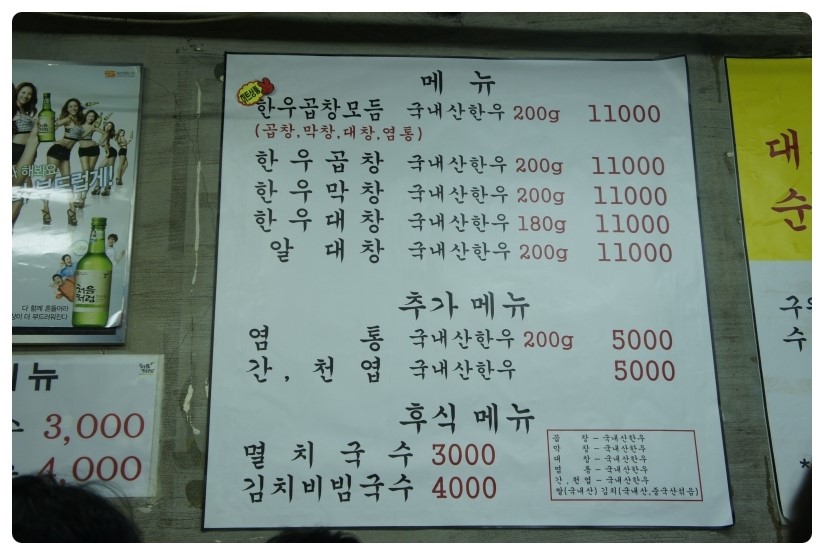 메 뉴
히트상품
한우곱창모듬 국내산한우 200g 11000
(곱창,막창,대창,염통)
한 우 곱 창 국내산한우 200g 11000
한 우 막 창 국내산한우 200g 11000
한 우 대 창 국내산한우 180g 11000
알 대 창 국내산한우 200g 11000
추가 메뉴
염 통 국내산한우 200g 5000
간 , 천 엽 국내산한우 5000
후식 메뉴
멸 치 국 수 3000
김치비빔국수 4000
곱 창 - 국내산한우
막 창 - 국내산한우
대 창 - 국내산한우
염 통 - 국내산한우
간, 천엽 - 국내산한우
쌀(국내산) 김치(국내산,중국산섞음)
해봐요
부드럽게!
처음처럼
다 함께 흔들어라
더 부드러워진다
뉴
3,000
4,000
대
순
구
수
*